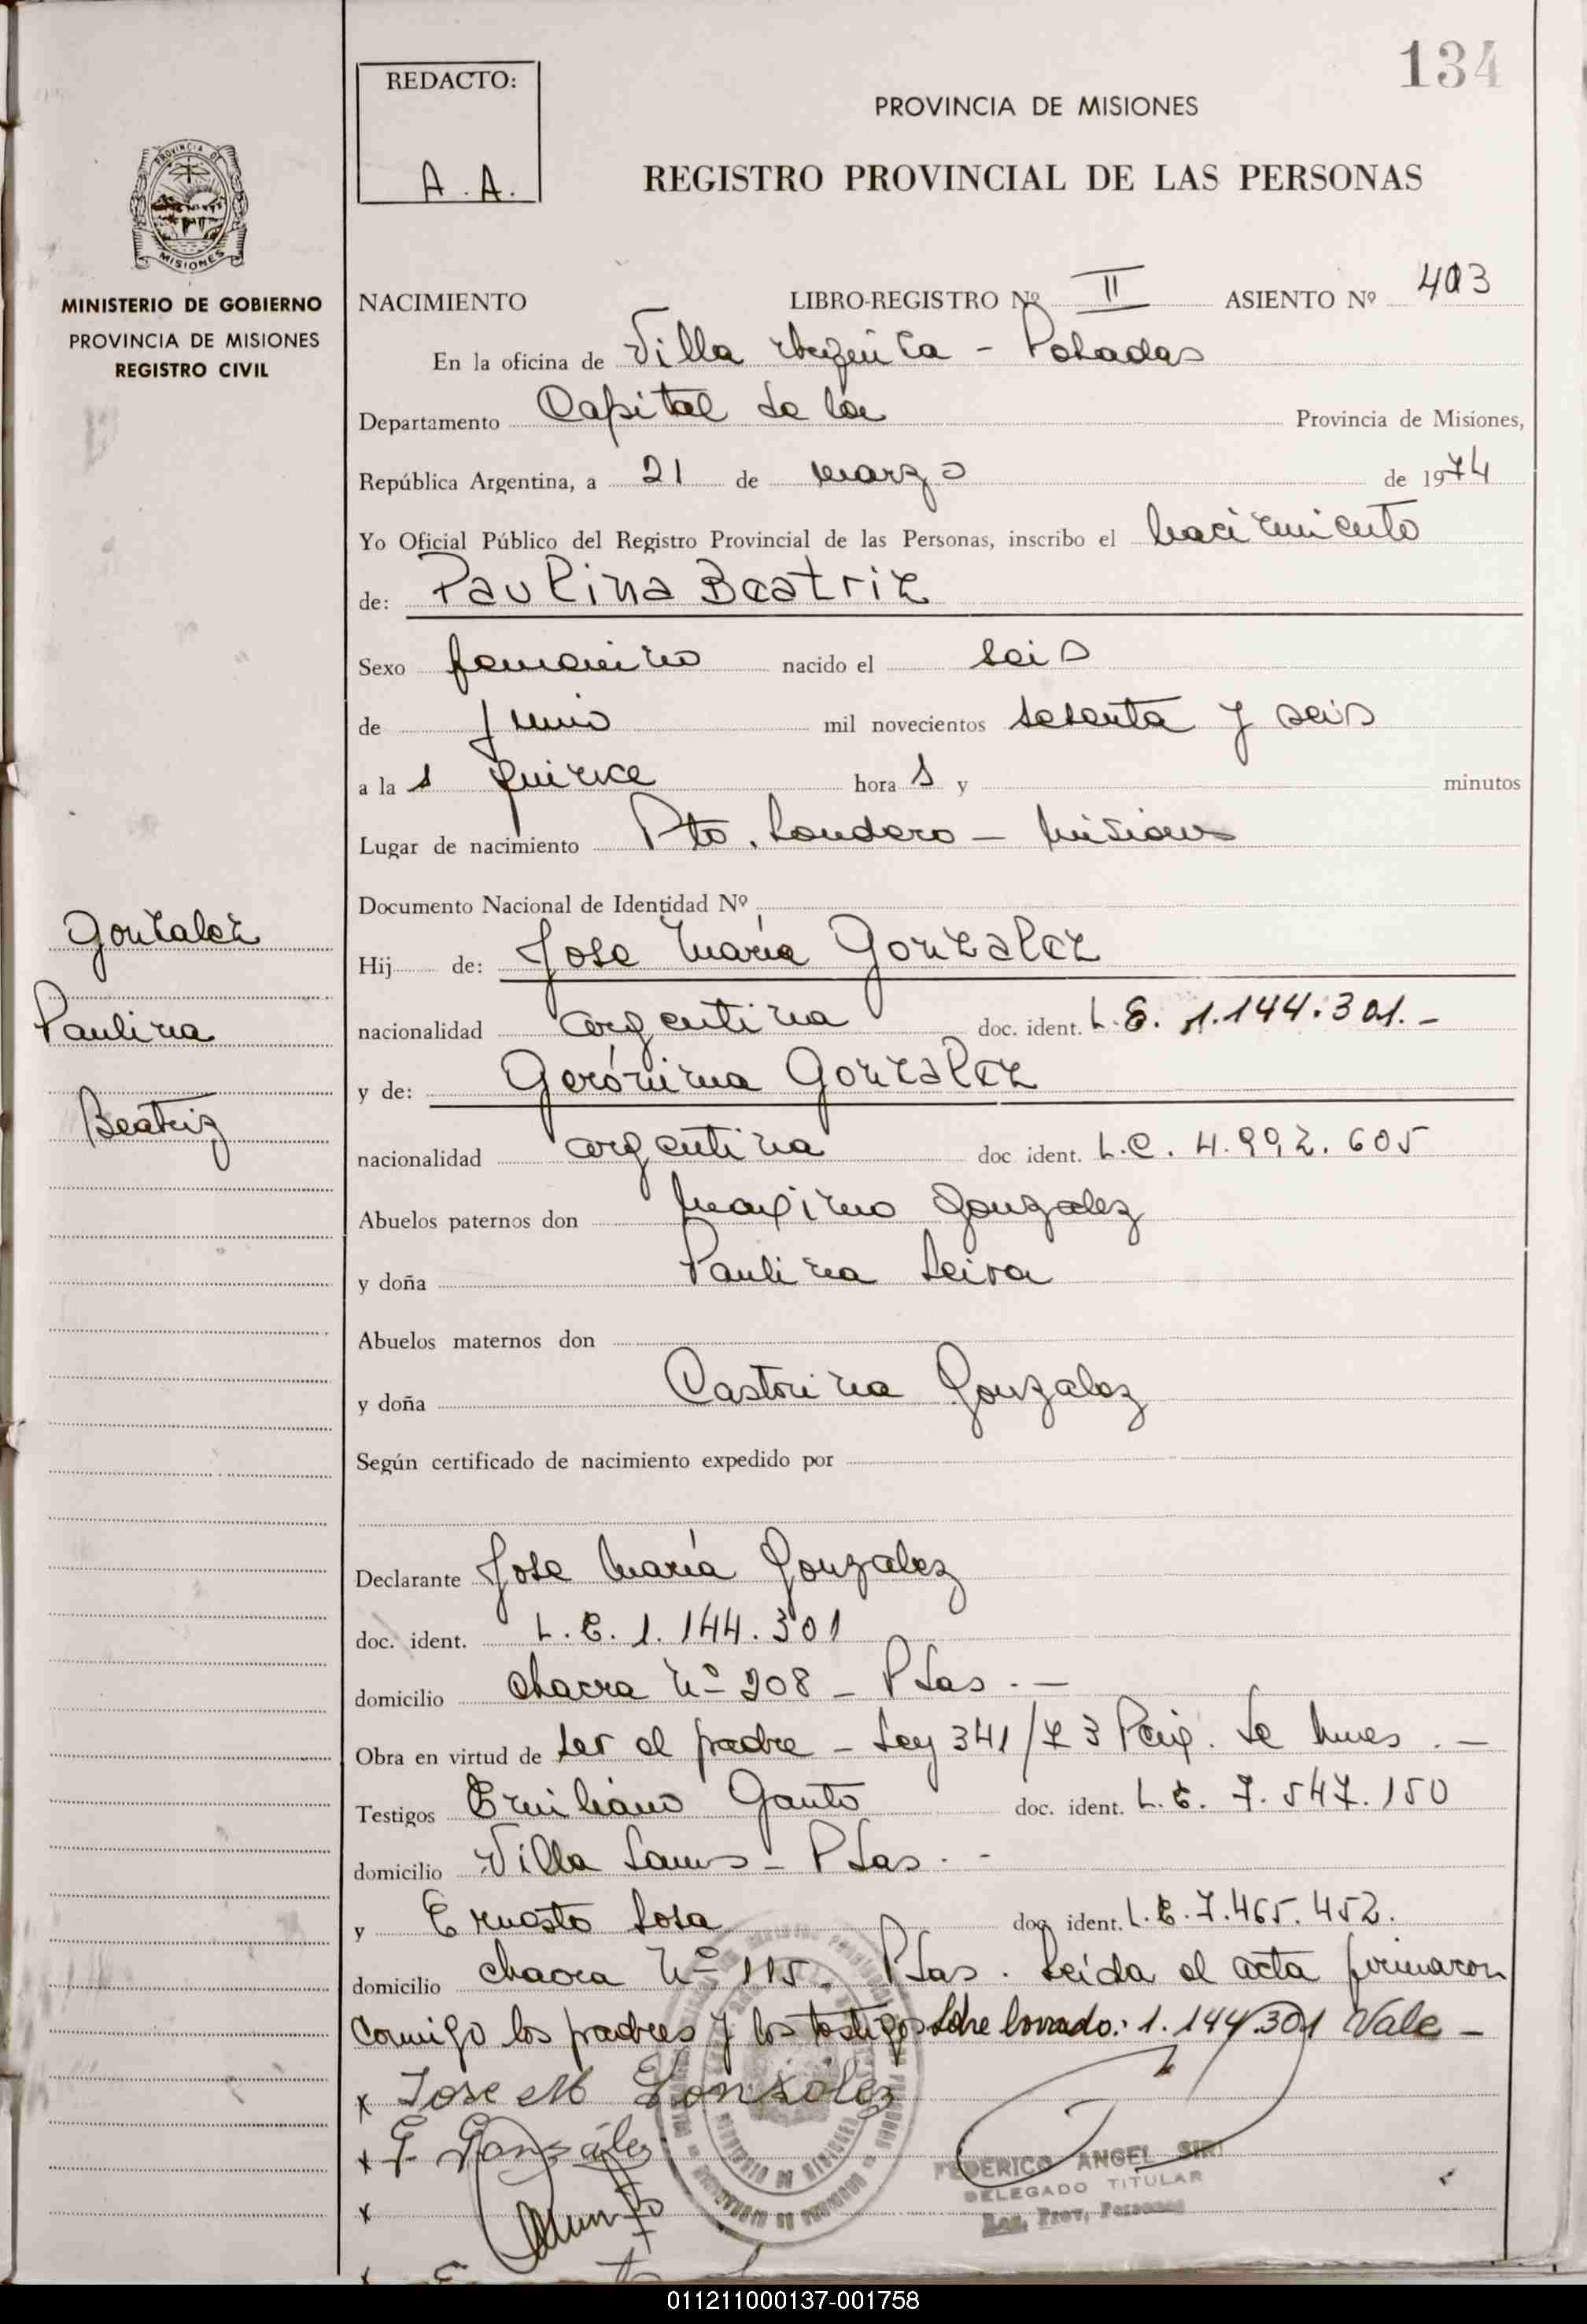 134
REDACTO:
A. A.
PROVINCIA DE MISIONES
REGISTRO PROVINCIAL DE LAS PERSONAS
PROVINCIA DE
MISIONES
MINISTERIO DE GOBIERNO
PROVINCIA DE MISIONES
REGISTRO CIVIL
NACIMIENTO LIBRO-REGISTRO Nº II ASIENTO Nº 403
En la oficina de Villa Urquiza - Posadas
Departamento Capital de la Provincia de Misiones,
República Argentina, a 21 de marzo de 1974
Yo Oficial Público del Registro Provincial de las Personas, inscribo el nacimiento
de: Paulina Beatriz
Sexo femenino nacido el seis
de junio mil novecientos sesenta y seis
a la s quince hora s y minutos
Lugar de nacimiento Pto. Londero - Misiones
Documento Nacional de Identidad Nº
Hij de: Jose María Gonzalez
nacionalidad argentina doc. ident. L.E. 1.144.301.-
y de: Gerónima Gonzalez
nacionalidad argentina doc ident. L.C. 4.992.605
Abuelos paternos don Maximo Gonzalez
y doña Paulina Leiva
Abuelos maternos don
y doña Castorina Gonzalez
Según certificado de nacimiento expedido por
Declarante Jose María Gonzalez
doc. ident. L.E. 1.144.301
domicilio Chacra Nº 208 - Pdas.-
Obra en virtud de ser el padre - Ley 341/73 de .-
Testigos Emiliano Gauto doc. ident. L.E. 7.547.150
domicilio Villa Lanus - Pdas.-
y Ernesto Sosa doc ident. L.E. 7.465.452.
domicilio Chacra Nº 115. Pdas. Leida el acta firmaron
conmigo los padres y los testigos Sobre borrado: 1.144.301 Vale -
x Jose M Gonzalez
x G. González
x
FEDERICO ANGEL SIRI
DELEGADO TITULAR
Reg. Prov. Personas
Gonzalez
Paulina
Beatriz
011211000137-001758